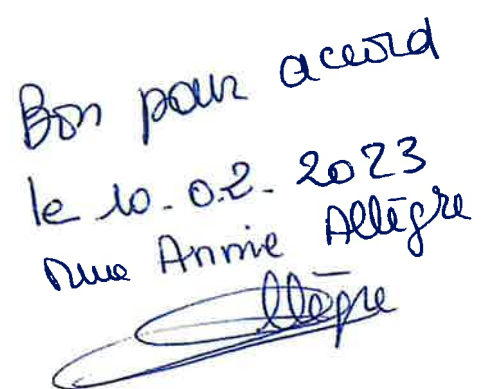 Bon pour accord
le 10.02.2023
Mme Annie Allègre
Allègre